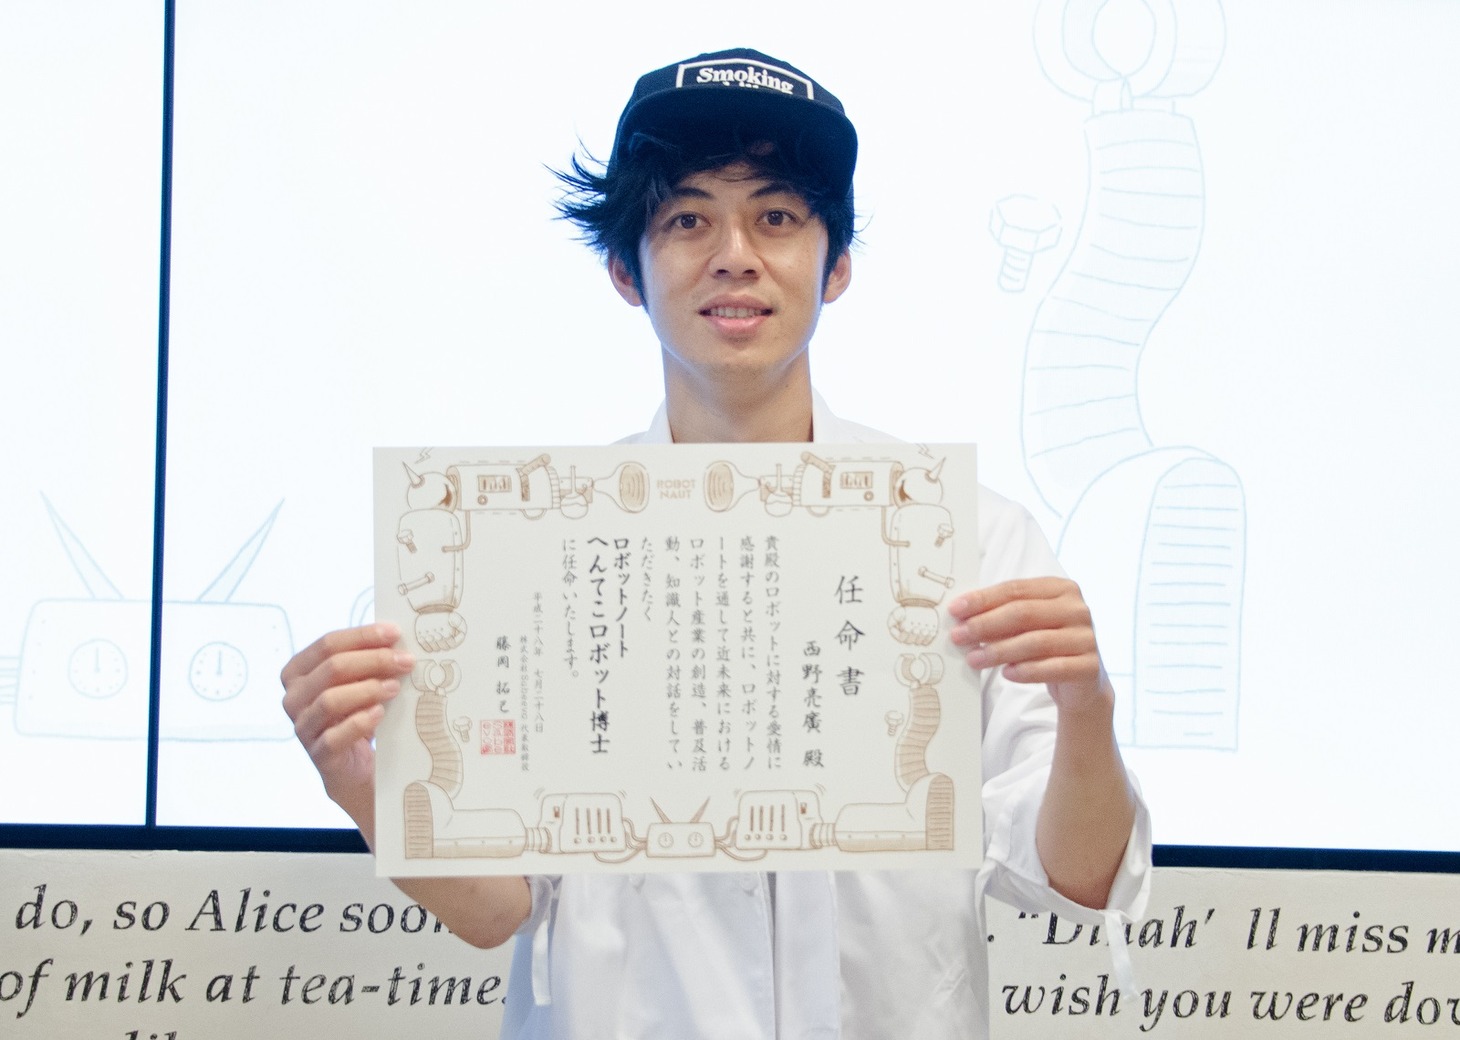 Smoking
ROBOT
NAUT
任命書
西野亮廣 殿
貴殿のロボットに対する愛情に
感謝すると共に、ロボットノ
ートを通して近未来における
ロボット産業の創造、普及活
動、知識人との対話をしてい
ただきたく
ロボットノート
へんてこロボット博士
に任命いたします。
平成二十八年 七月二十八日
代表取締役
藤岡 拓己
do, so Alice soon
. "Dinah' ll miss m
of milk at tea-time.
wish you were dow